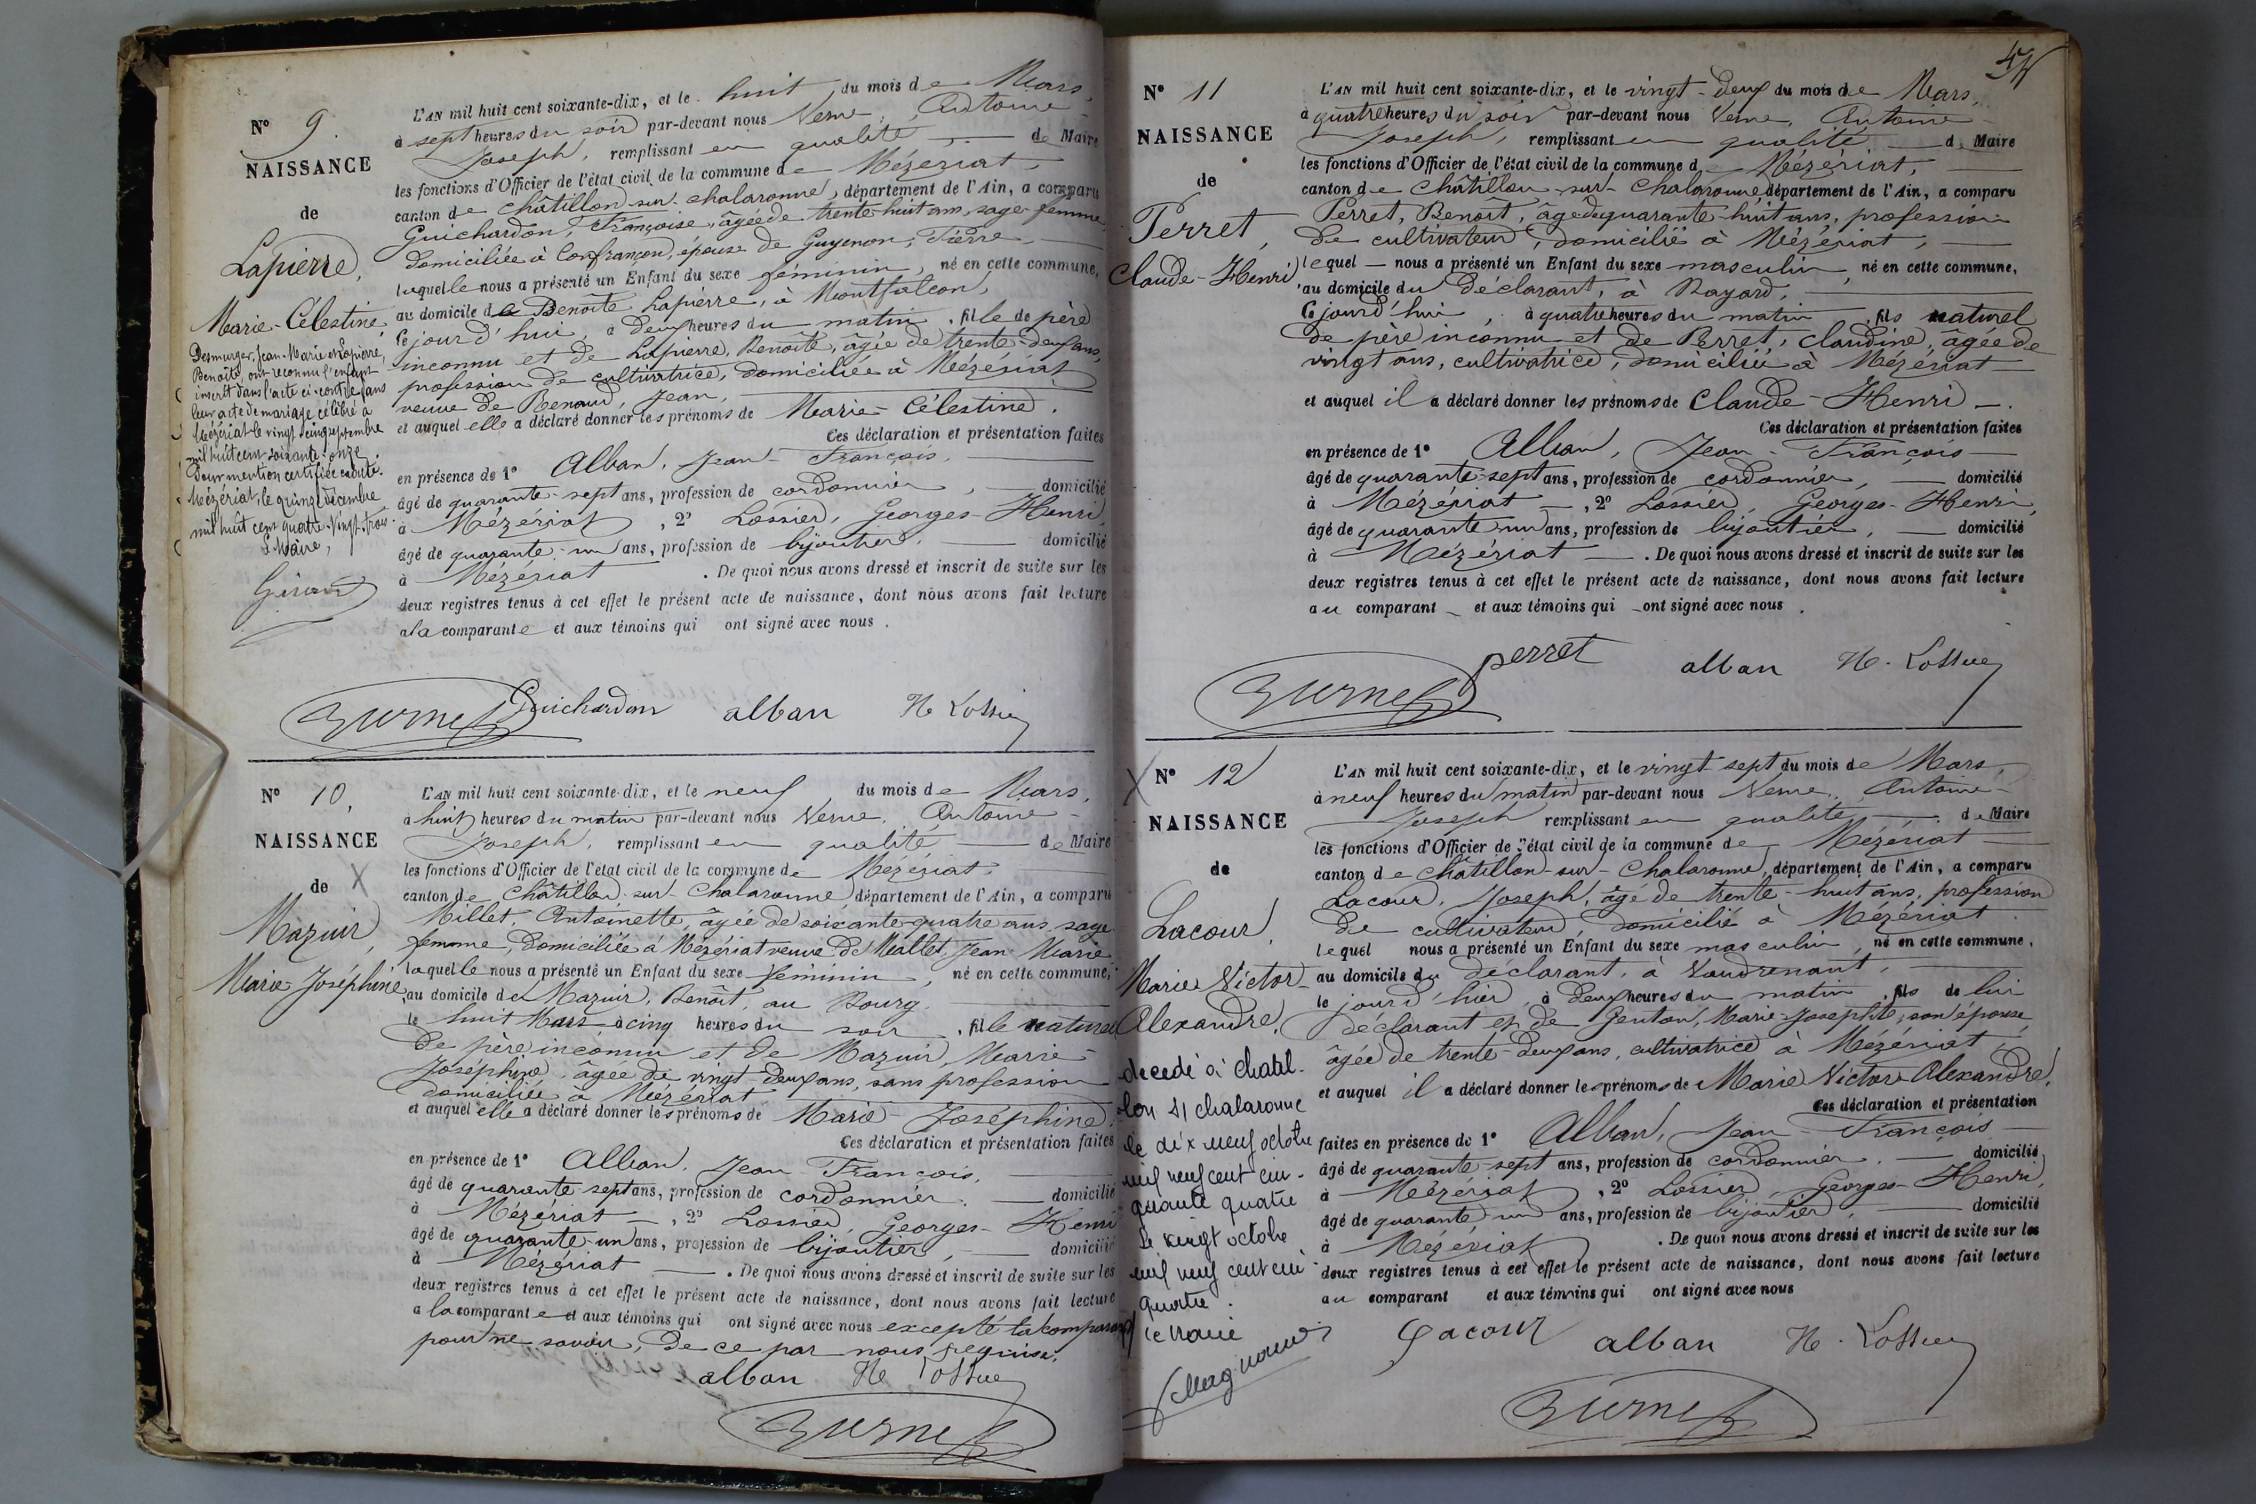 N° 9.
NAISSANCE
de
Lapierre,
Marie-Célestine
Desmurger, Jean-Marie et Lapierre,
Benoîte, ont reconnu l'enfant
inscrit dans l'acte ci-contre dans
leur acte de mariage célébré à
Mézériat le vingt cinq septembre
mil huit cent soixante-onze.
Pour mention certifiée exacte.
Mézériat, le quinze décembre
mil huit cent quatre-vingt-trois.
Le Maire,
L'AN mil huit cent soixante-dix, et le huit du mois de Mars,
à sept heures du soir par-devant nous Verne, Antoine-
Joseph, remplissant en qualité de Maire
les fonctions d'Officier de l'état civil de la commune de Mézériat,
canton de Châtillon-sur-Chalaronne, département de l'Ain, a comparu
Guichardon, Françoise, âgée de trente-huit ans, sage-femme,
domiciliée à Confrançon, épouse de Guyenon, Pierre,
laquelle nous a présenté un Enfant du sexe féminin, né en cette commune,
au domicile de Benoîte Lapierre, à Montfalcon,
cejourd'hui, à deux heures du matin, fille de père
inconnu et de Lapierre, Benoîte, âgée de trente-deux ans,
profession de cultivatrice, domiciliée à Mézériat
veuve de Renaud, Jean,
et auquel elle a déclaré donner les prénoms de Marie-Célestine.
Ces déclaration et présentation faites
en présence de 1° Alban, Jean-François,
âgé de quarante-sept ans, profession de cordonnier, domicilié
à Mézériat, 2° Lossier, Georges-Henri,
âgé de quarante-un ans, profession de bijoutier, domicilié
à Mézériat. De quoi nous avons dressé et inscrit de suite sur les
deux registres tenus à cet effet le présent acte de naissance, dont nous avons fait lecture
à la comparante et aux témoins qui ont signé avec nous.
Guichardon alban H Lossier
N° 10,
NAISSANCE
de X
Mazuir,
Marie Joséphine
L'AN mil huit cent soixante-dix, et le neuf du mois de Mars,
à huit heures du matin par-devant nous Verne, Antoine-
Joseph, remplissant en qualité de Maire
les fonctions d'Officier de l'état civil de la commune de Mézériat,
canton de Châtillon-sur-Chalaronne, département de l'Ain, a comparu
Millet, Antoinette, âgée de soixante-quatre ans, sage-
femme, domiciliée à Mézériat veuve de Mallet, Jean Marie,
laquelle nous a présenté un Enfant du sexe féminin, né en cette commune,
au domicile de Mazuir, Benoît, au Bourg
le huit Mars à cinq heures du soir, fille naturel
de père inconnu et de Mazuir, Marie-
Joséphine, âgée de vingt-deux ans, sans profession
domiciliée à Mézériat
et auquel elle a déclaré donner les prénoms de Marie-Joséphine.
Ces déclaration et présentation faites
en présence de 1° Alban, Jean-François,
âgé de quarante sept ans, profession de cordonnier. domicilié
à Mézériat, 2° Lossier, Georges-Henri
âgé de quarante-un ans, profession de bijoutier, domicilié
à Mézériat. De quoi nous avons dressé et inscrit de suite sur les
deux registres tenus à cet effet le présent acte de naissance, dont nous avons fait lecture
a la comparante et aux témoins qui ont signé avec nous excepté la comparante
pour ne savoir, de ce par nous requise.
alban H Lossier
N° 11
NAISSANCE
de
Perret,
Claude-Henri,
L'AN mil huit cent soixante-dix, et le vingt-deux du mois de Mars,
à quatre heures du soir par-devant nous Verne, Antoine-
Joseph, remplissant en qualité de Maire
les fonctions d'Officier de l'état civil de la commune de Mézériat,
canton de Châtillon-sur-Chalaronne, département de l'Ain, a comparu
Perret, Benoît, âgé de quarante-huit ans, profession
de cultivateur, domicilié à Mézériat,
lequel nous a présenté un Enfant du sexe masculin, né en cette commune,
au domicile du déclarant, à Rayard,
cejourd'hui, à quatre heures du matin, fils naturel
de père inconnu et de Perret, Claudine, âgée de
vingt ans, cultivatrice, domiciliée à Mézériat
et auquel il a déclaré donner les prénoms de Claude-Henri.
Ces déclaration et présentation faites
en présence de 1° Alban, Jean-François
âgé de quarante-sept ans, profession de cordonnier, domicilié
à Mézériat, 2° Lossier, Georges-Henri,
âgé de quarante un ans, profession de bijoutier, domicilié
à Mézériat. De quoi nous avons dressé et inscrit de suite sur les
deux registres tenus à cet effet le présent acte de naissance, dont nous avons fait lecture
au comparant et aux témoins qui ont signé avec nous.
perret alban H. Lossier
X N° 12
NAISSANCE
de
Lacour,
Marie Victor
Alexandre,
decedé à Chatil-
lon s/ chalaronne
le dix neuf octobre
mil neuf cent cin-
quante quatre
le vingt octobre
mil neuf cent cin
quatre.
le Maire
L'AN mil huit cent soixante-dix, et le vingt-sept du mois de Mars,
à neuf heures du matin par-devant nous Verne, Antoine-
Joseph remplissant en qualité de Maire
les fonctions d'Officier de l'état civil de la commune de Mézériat
canton de Châtillon-sur-Chalaronne, département de l'Ain, a comparu
Lacour, Joseph, âgé de trente-huit ans, profession
de cultivateur, domicilié à Mézériat
lequel nous a présenté un Enfant du sexe masculin, né en cette commune,
au domicile du déclarant, à Vaudrenant,
le jour d'hier à deux heures du matin, fils de lui
déclarant et de Genton, Marie-Josephte, son épouse
âgée de trente-deux ans, cultivatrice à Mézériat,
et auquel il a déclaré donner les prénoms de Marie Victor Alexandre.
Ces déclaration et présentation
faites en présence de 1° Alban, Jean-François
âgé de quarante-sept ans, profession de cordonnier. domicilié
à Mézériat, 2° Lossier, Georges-Henri,
âgé de quarante un ans, profession de bijoutier, domicilié
à Mézériat. De quoi nous avons dressé et inscrit de suite sur les
deux registres tenus à cet effet le présent acte de naissance, dont nous avons fait lecture
au comparant et aux témoins qui ont signé avec nous
Lacour alban H. Lossier